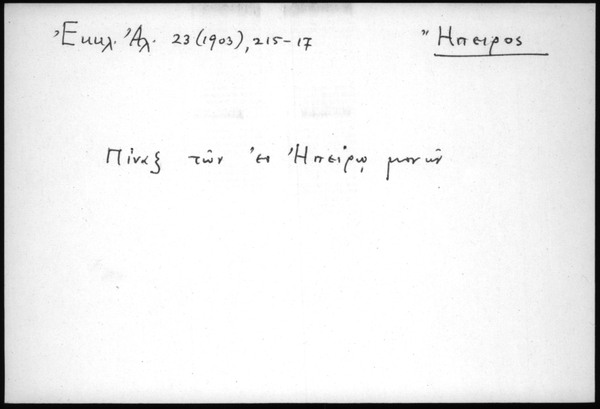 Ἐκκλ. Ἀλ. 23 (1903), 215-17
Ἤπειρος
Πίναξ τῶν ἐν Ἠπείρῳ μονῶν